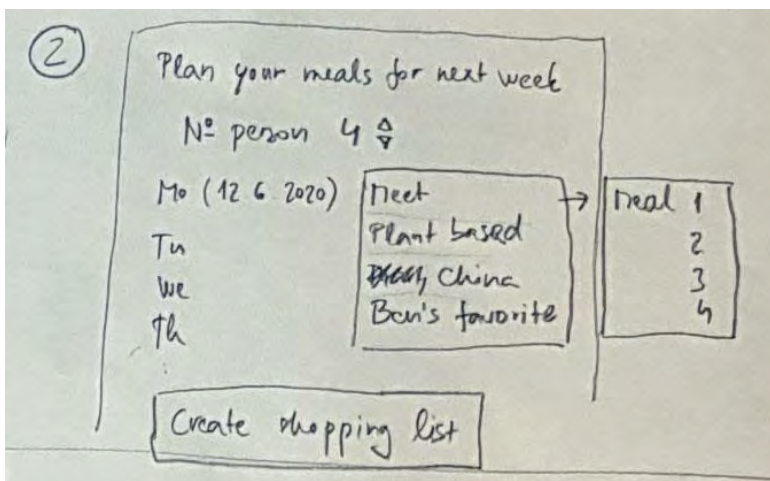 2
Plan your meals for next week
Nº person 4
Mo (12 6 2020) Meet → Meal 1
Tu Plant based 2
We China 3
Th Ben's favorite 4
Create shopping list